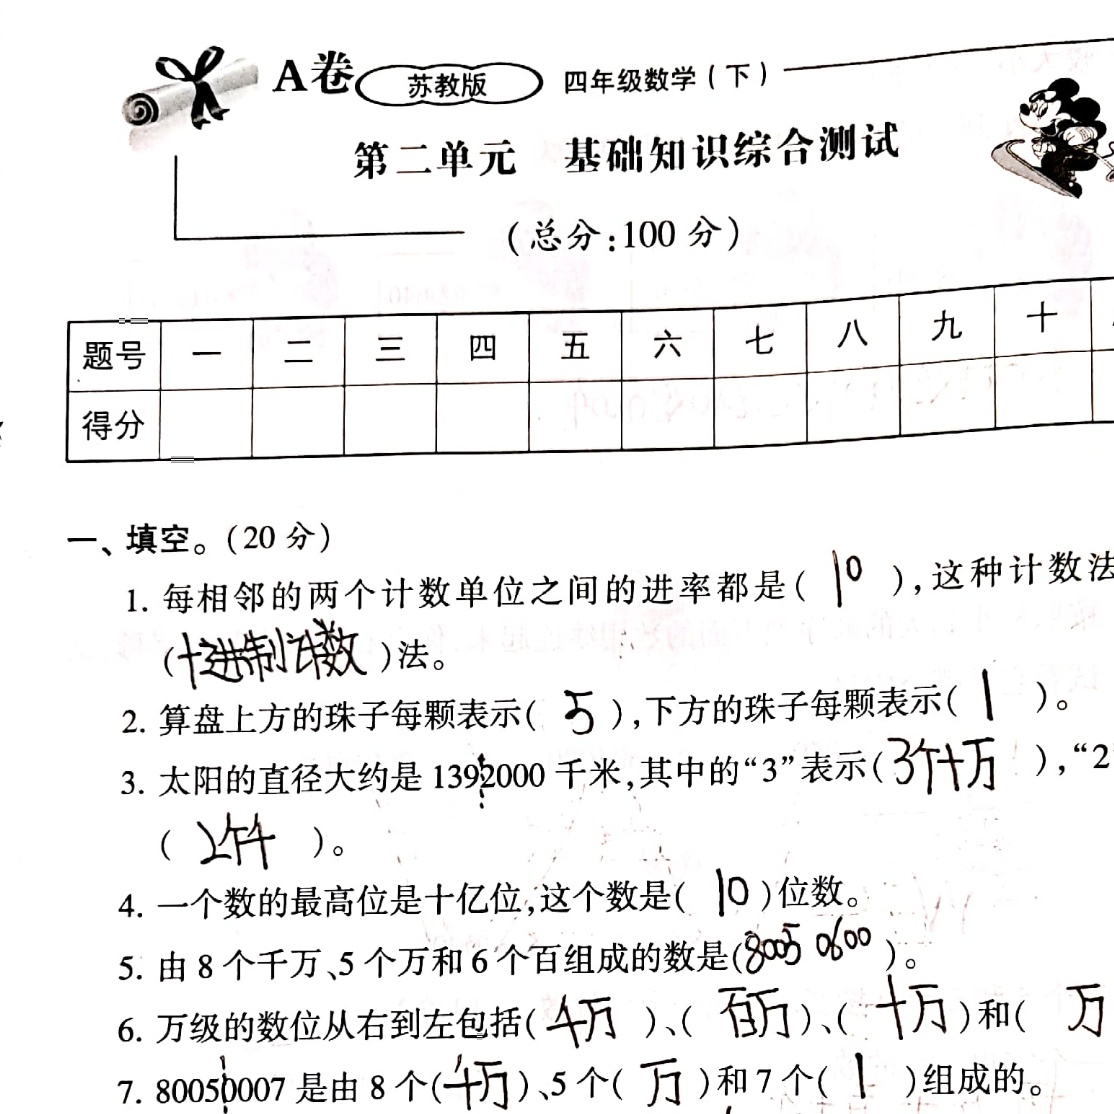 A卷 苏教版 四年级数学(下)
第二单元 基础知识综合测试
(总分:100 分)
题号 一 二 三 四 五 六 七 八 九 十
得分
一、填空。(20 分)
1. 每相邻的两个计数单位之间的进率都是( 10 ),这种计数法
(十进制计数)法。
2. 算盘上方的珠子每颗表示( 5 ),下方的珠子每颗表示( 1 )。
3. 太阳的直径大约是 1392000 千米,其中的“3”表示(3个十万 ),“2”
( 2个千 )。
4. 一个数的最高位是十亿位,这个数是( 10 )位数。
5. 由 8 个千万、5 个万和 6 个百组成的数是(80050600 )。
6. 万级的数位从右到左包括( 千万 )、( 百万 )、( 十万 )和( 万
7. 80050007 是由 8 个(千万)、5 个( 万 )和 7 个( 1 )组成的。